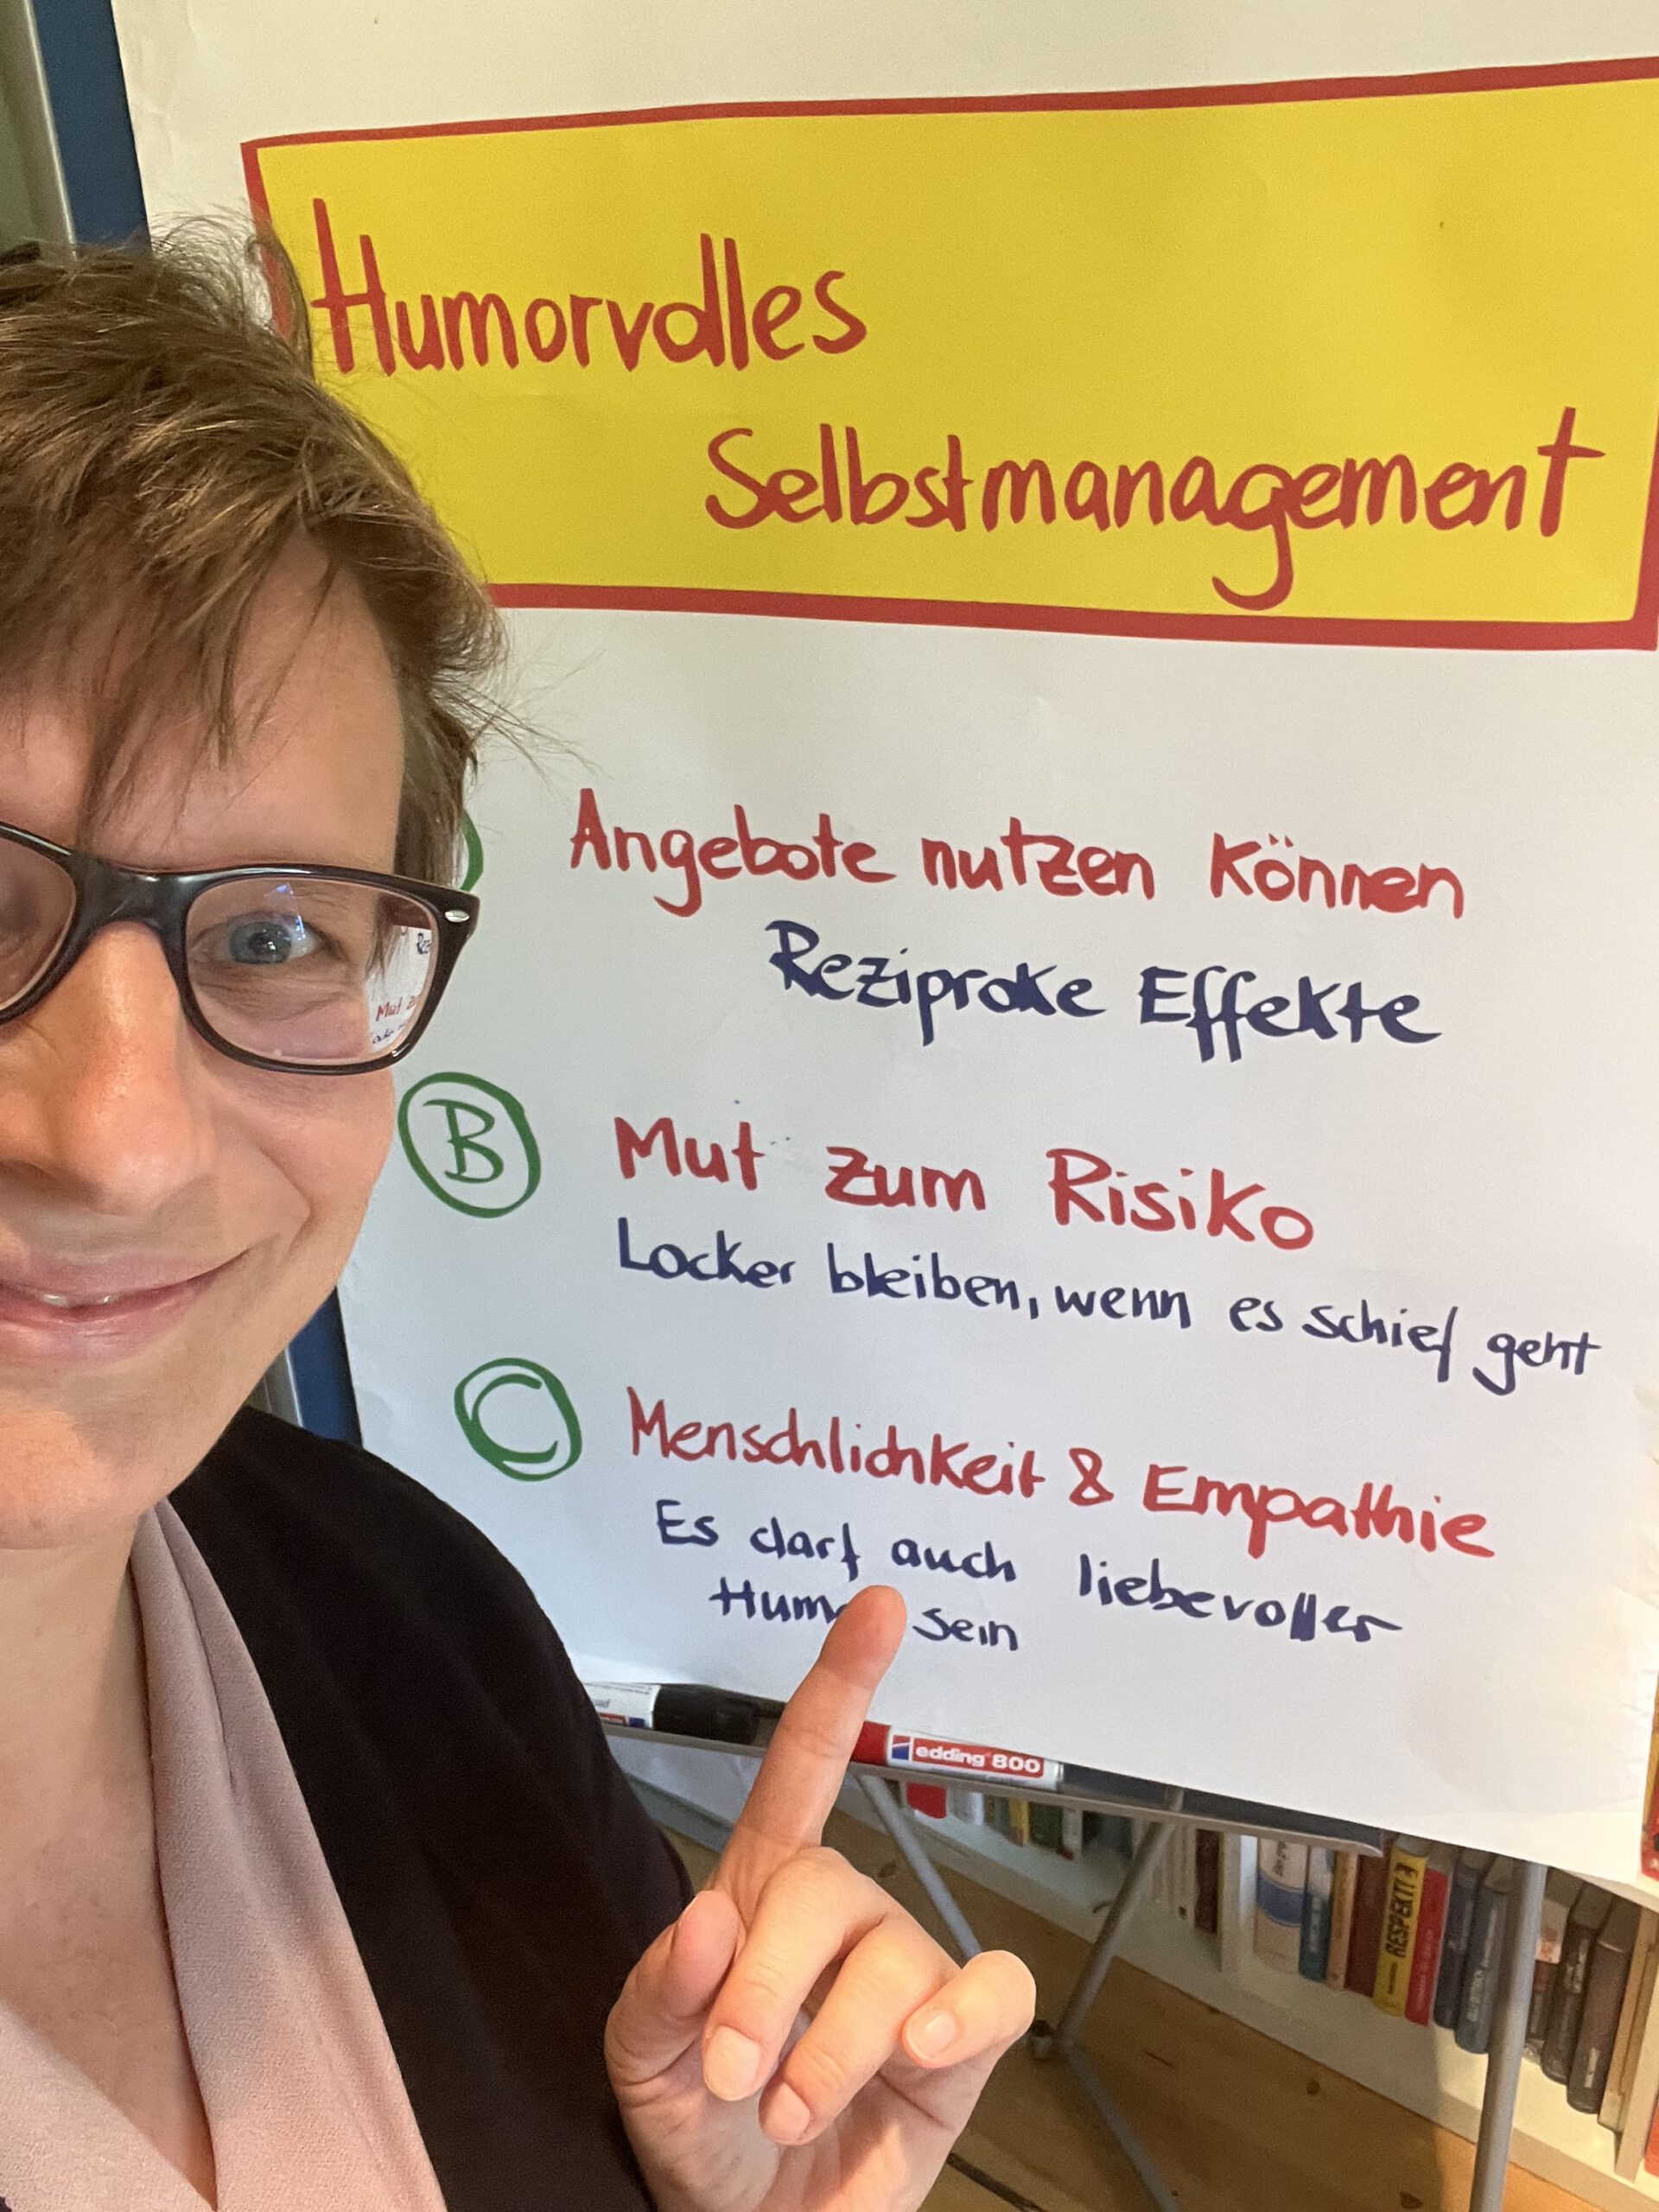 Humorvolles
Selbstmanagement
Angebote nutzen können
Reziproke Effekte
B
Mut zum Risiko
Locker bleiben, wenn es schief geht
C
Menschlichkeit & Empathie
Es darf auch liebevoller
Hum sein
edding 800
RESPEKT!